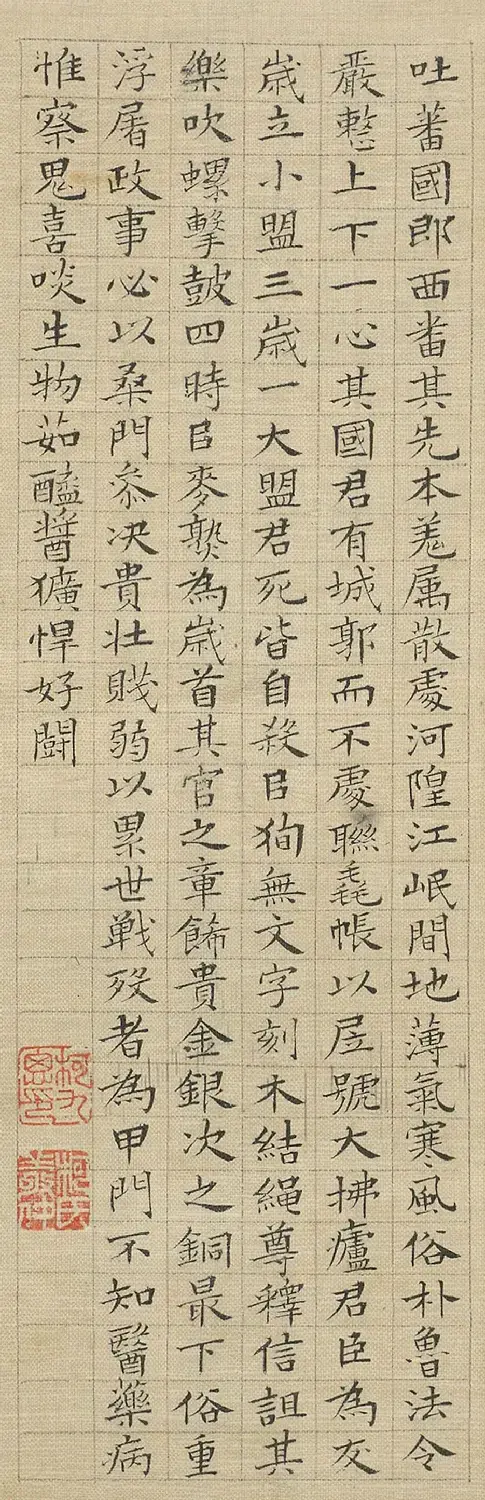 吐蕃國即西畨其先本羌属散處河隍江岷間地薄氣寒風俗朴魯法令
嚴整上下一心其國君有城郭而不處聯毳帳以居號大拂廬君臣為友
歲立小盟三歲一大盟君死皆自殺㠯狥無文字刻木結繩尊釋信詛其
樂吹螺擊鼓四時㠯麥熟為歲首其官之章飾貴金銀次之銅最下俗重
浮屠政事必以桑門叅决貴壯賤弱以累世戰歿者為甲門不知醫藥病
惟察鬼喜啖生物茹醯醬獷悍好闘
柯九思印